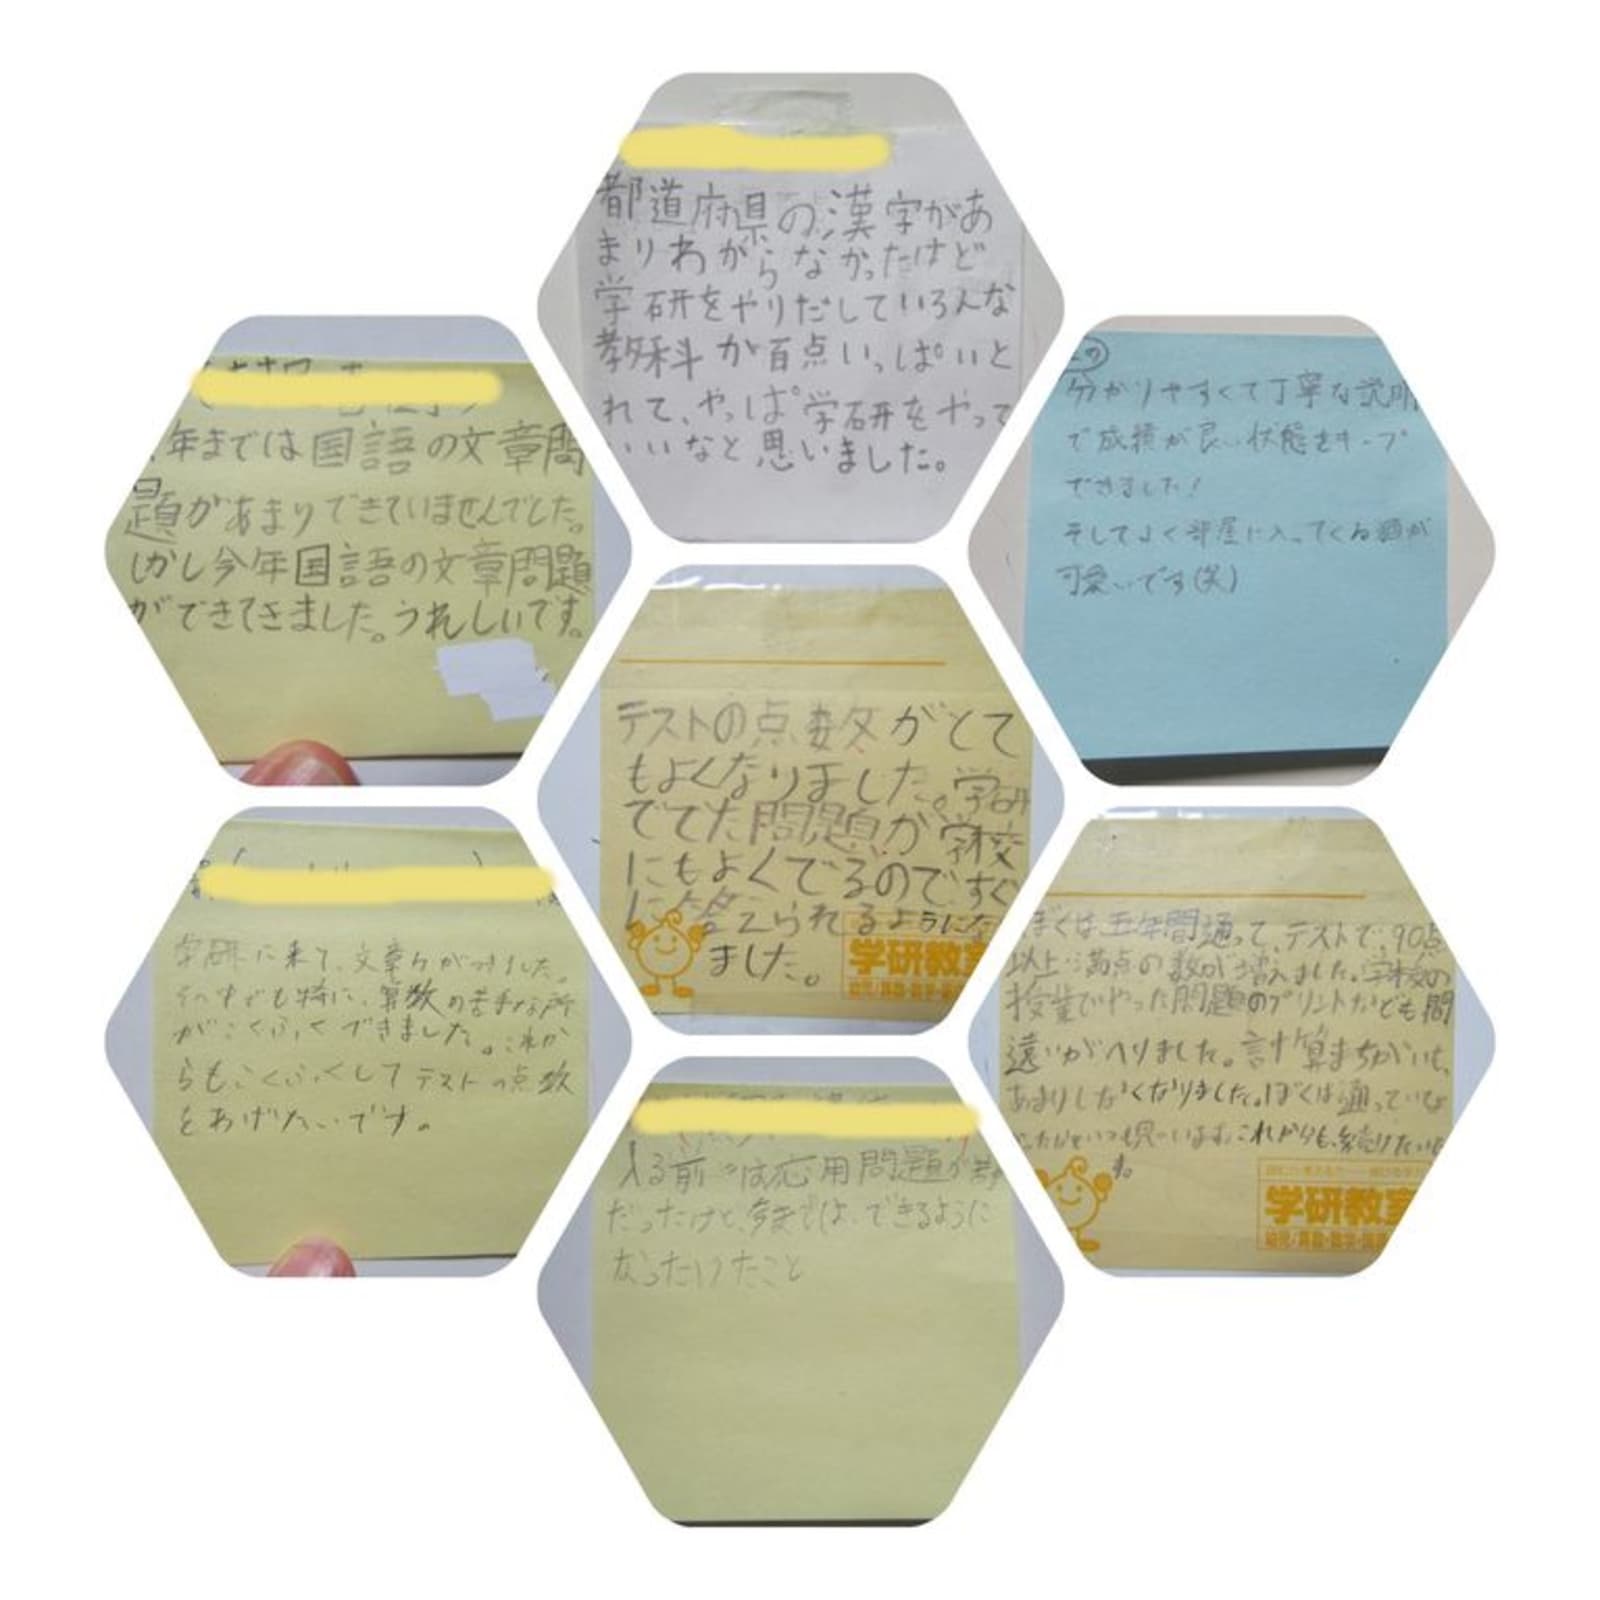 都道府県の漢字があ
まりわがらなかったけど
学研をやりだしていろんな
教科が百点いっぱいと
れて、やっぱ学研をやって
いいなと思いました。
年までは国語の文章問
題があまりできていませんでした。
しかし今年国語の文章問題
ができてきました。うれしいです。
分かりやすくて丁寧な説明
で成績が良い状態をキープ
できました!
そしてよく部屋に入ってくる猫が
可愛いです(笑)
テストの点数がとて
もよくなりました。学研
ででた問題が学校
にもよくでるのですぐ
に答えられるようにな
ました。
学研教室
学研に来て、文章力がつきました。
その中でも特に、算数の苦手な所
がこくふくできました。これか
らもこくふくしてテストの点数
をあげたいです。
ぼくは五年間通って、テストで、90点
以上・満点の数が増えました。学校の
授業でやった問題のプリントなども間
違いがへりました。計算まちがいも、
あまりしなくなりました。ぼくは通っていな
これからも、続けたいで
す。
学研教室
入る前は応用問題が苦手
だったけど、今までは、できるように
なったけたこと